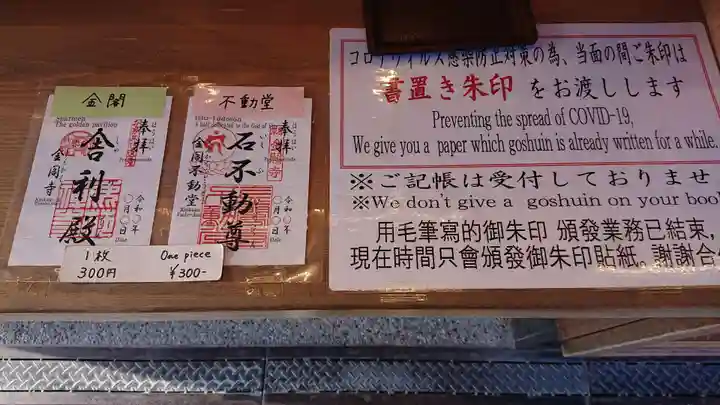 金閣
The golden pavilion
奉拝
舎利殿
金閣寺
令和〇年
〇月〇日
Date
不動堂
奉拝
石不動尊
金閣不動堂
令和〇年
〇月〇日
Date
1枚 One piece
300円 ¥300-
コロナウイルス感染防止対策の為、当面の間ご朱印は
書置き朱印 をお渡しします
Preventing the spread of COVID-19,
We give you a paper which goshuin is already written for a while.
※ご記帳は受付しておりませ
※We don't give a goshuin on your boo
用毛筆寫的御朱印 頒發業務已結束,
現在時間只會頒發御朱印貼紙。謝謝合